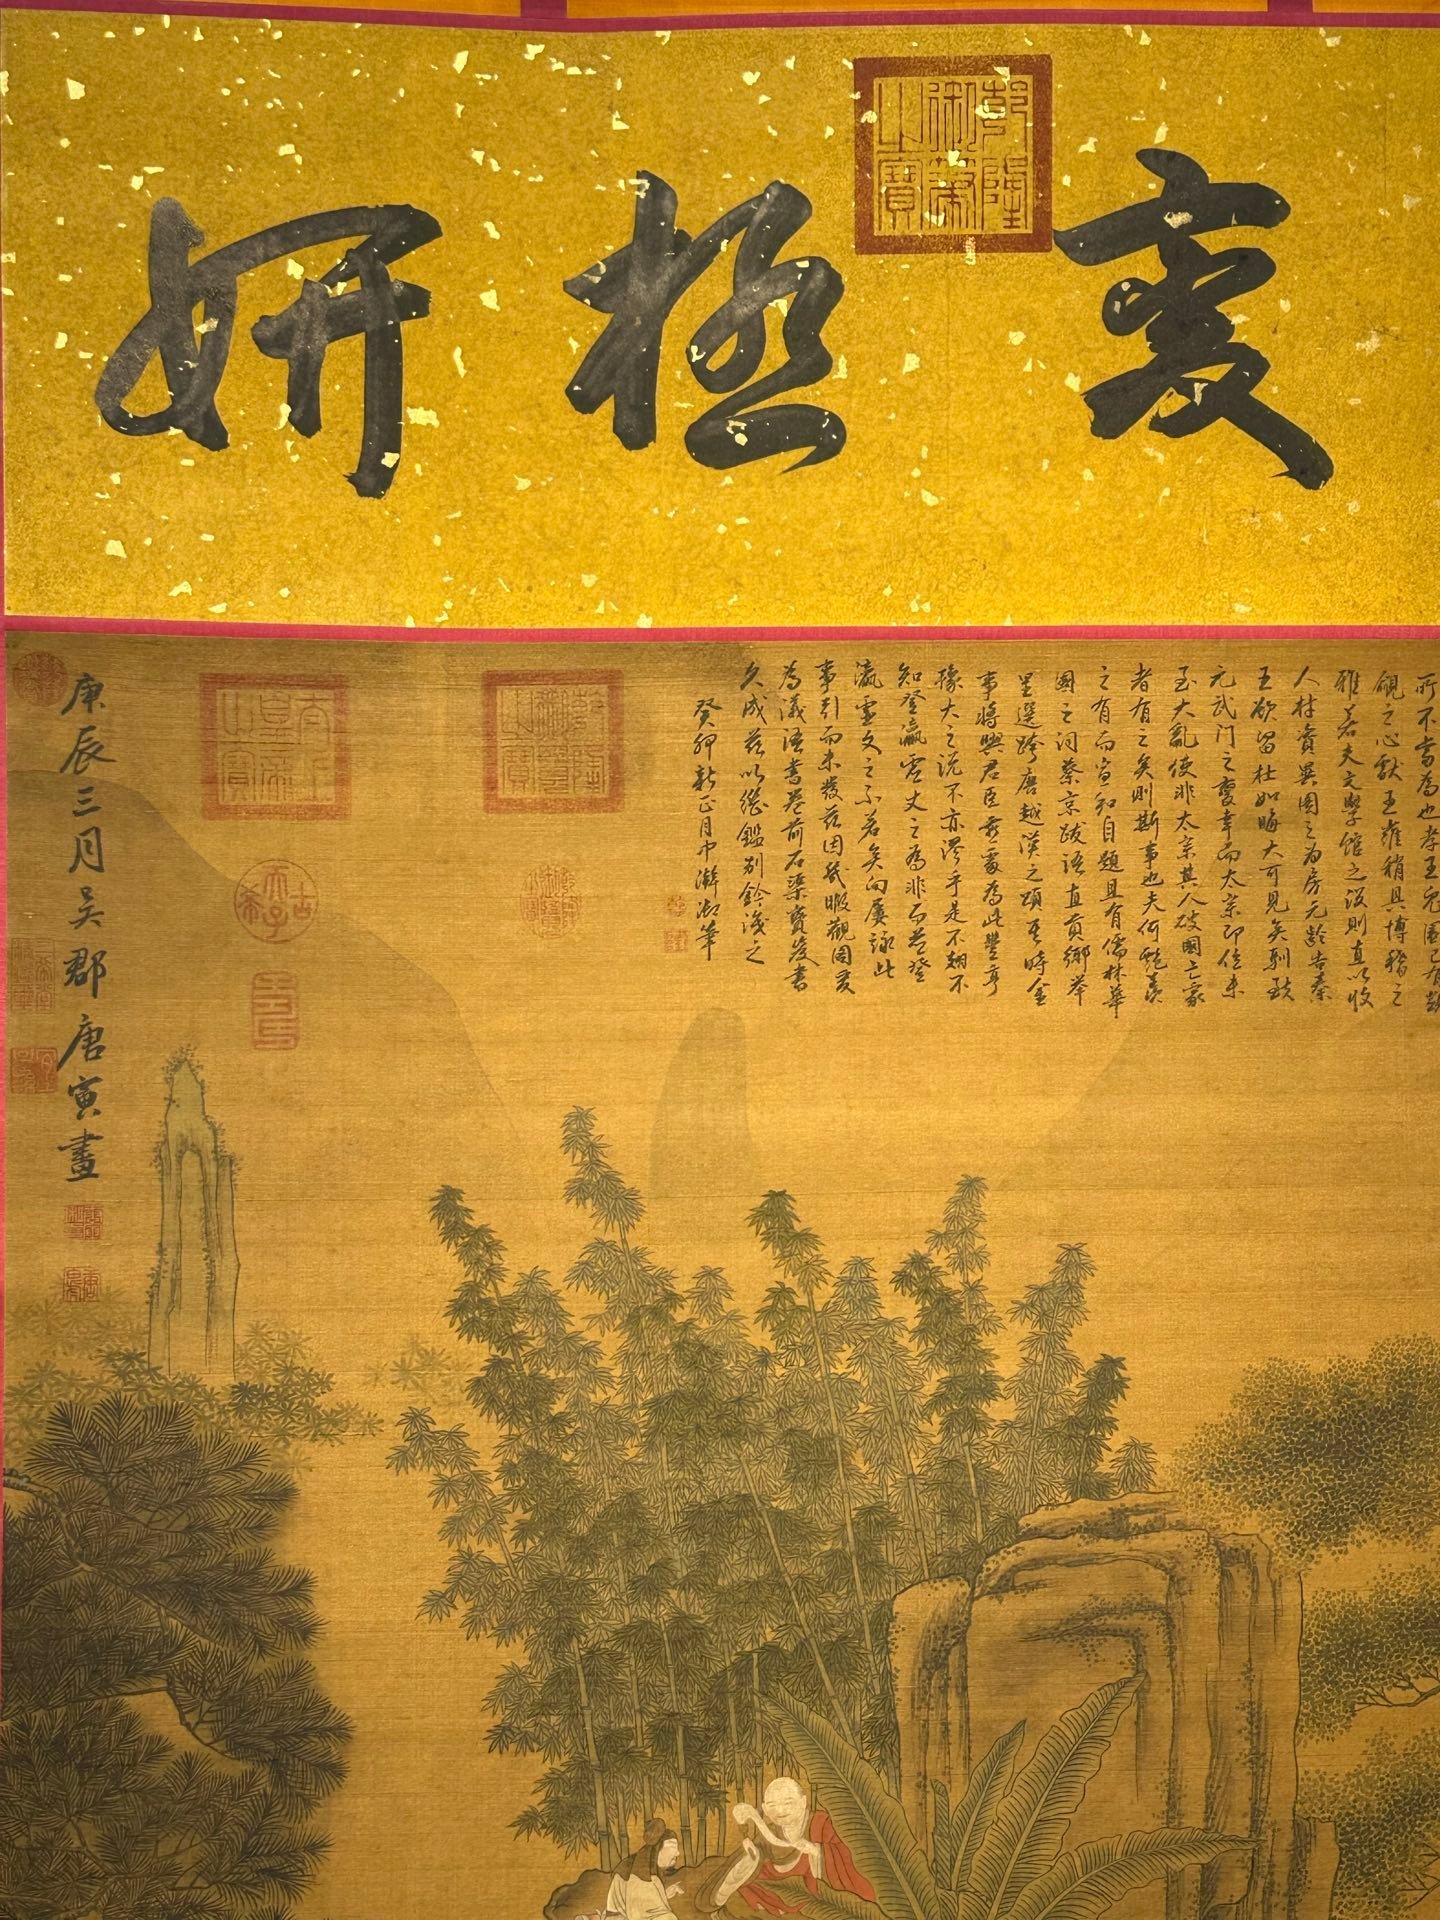 變極妍
乾隆御筆之寶
所不當為也孝王兔園已有
覩之心獻王雍稍具博稽之
雅若夫文學館之設則直以收
人材資異圖之為房元齡告秦
王欲留杜如晦大可見矣馴致
元武門之變幸而太宗即位未
至大亂使非太宗其人破國亡家
者有之矣則斯事也夫何艷羨
之有而宣和自題且有儒林華
國之詞蔡京跋語直貢鄉舉
里選跨唐越漢之頌其時金
事將興君臣為此豐亨
豫大之說不亦謬乎是不翅不
知登瀛虛文之為非而並登
瀛虛文之不若矣向屢詠此
事引而未發茲因幾暇觀圖爰
為議語書卷前石渠寶笈書
久成茲以繼鑑別鈐識之
癸卯新正月中澣御筆
乾隆御覽之寶
太上皇帝之寶
古稀天子
壽
庚辰三月吳郡唐寅畫